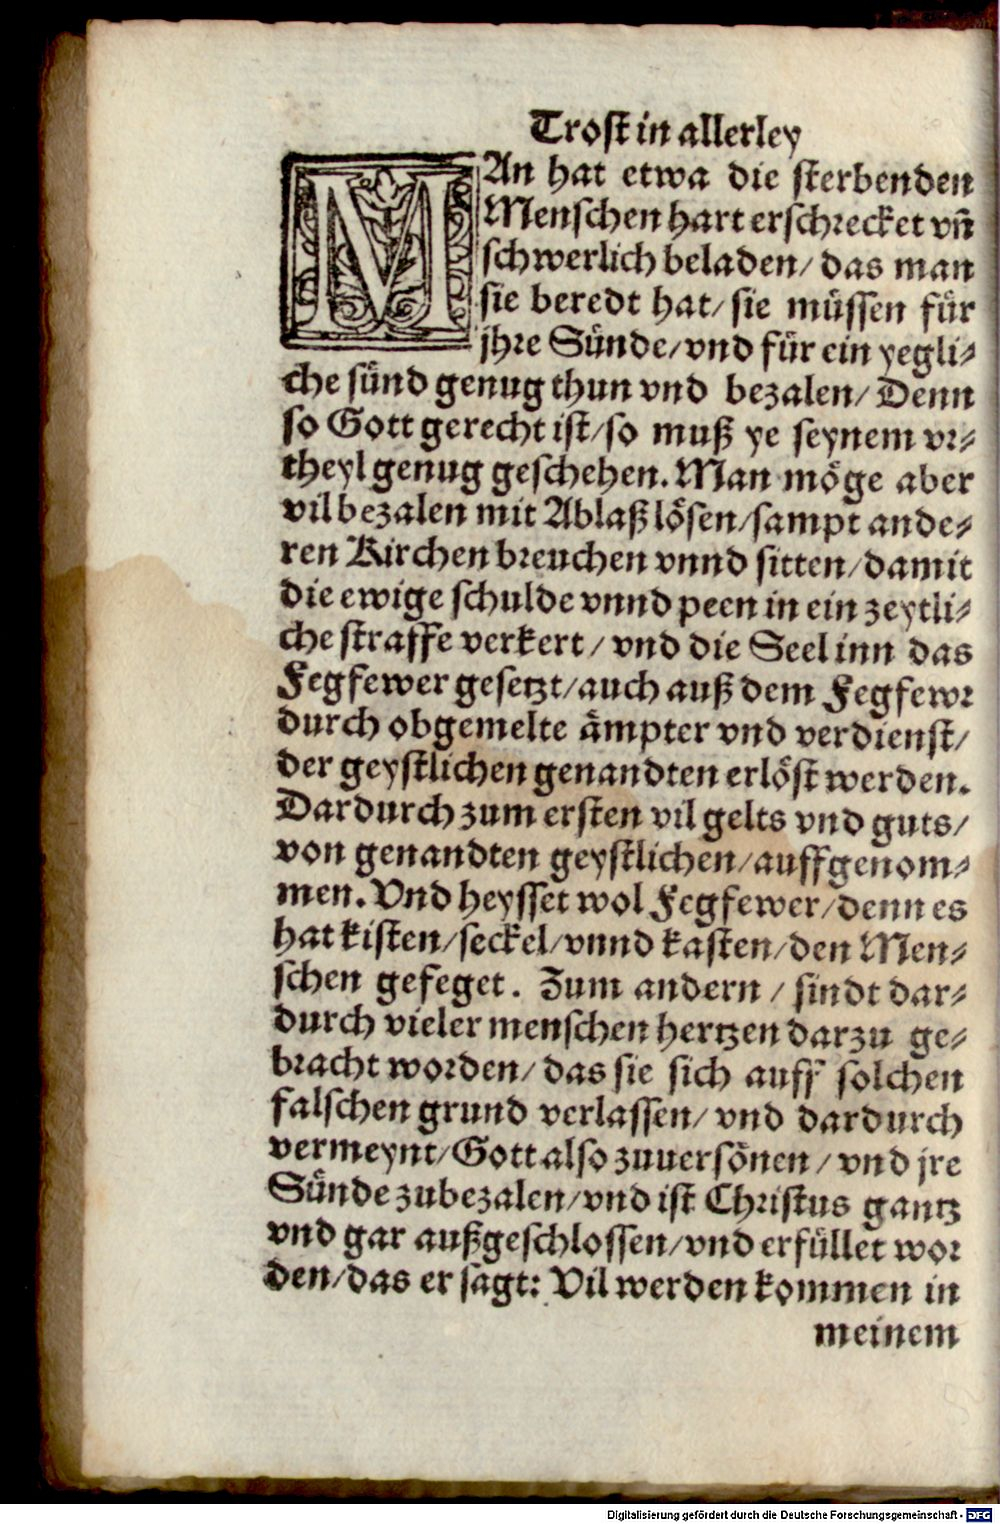 Trost in allerley
MAn hat etwa die sterbenden
Menschen hart erschrecket vn̄
schwerlich beladen/ das man
sie beredt hat/ sie müssen für
jhre Sünde/ vnd für ein yegli⸗
che sünd genug thun vnd bezalen/ Denn
so Gott gerecht ist/ so muß ye seynem vr⸗
theyl genug geschehen. Man möge aber
vil bezalen mit Ablaß lösen/ sampt ande⸗
ren Kirchen breuchen vnnd sitten/ damit
die ewige schulde vnnd peen in ein zeytli⸗
che straffe verkert/ vnd die Seel inn das
Fegfewer gesetzt/ auch auß dem Fegfewr
durch obgemelte ämpter vnd verdienst/
der geystlichen genandten erlöst werden.
Dardurch zum ersten vil gelts vnd guts/
von genandten geystlichen/ auffgenom⸗
men. Vnd heysset wol Fegfewer/ denn es
hat kisten/ seckel/ vnnd kasten/ den Men⸗
schen gefeget. Zum andern/ sindt dar⸗
durch vieler menschen hertzen darzu ge⸗
bracht worden/ das sie sich auff solchen
falschen grund verlassen/ vnd dardurch
vermeynt/ Gott also zuuersönen/ vnd jre
Sünde zubezalen/ vnd ist Christus gantz
vnd gar außgeschlossen/ vnd erfüllet wor
den/ das er sagt: Vil werden kommen in
meinem
Digitalisierung gefördert durch die Deutsche Forschungsgemeinschaft - DFG